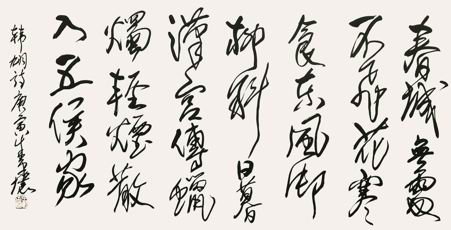 春城無處
不飛花寒
食東風御
柳斜日暮
漢宮傳蠟
燭輕煙散
入五侯家
韩翃詩庚寅